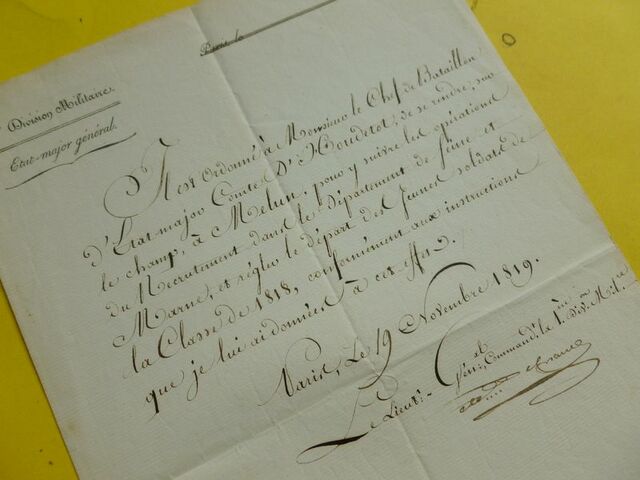 Paris le
Division Militaire.
Etat-major général.
Il est Ordonné à Monsieur le Chef de Bataillon
d'Etat-major Comte D'Houdetot, de se rendre, sur
le champ, à Melun, pour y suivre les opérations
du Recrutement dans le Département de Seine et
Marne, et régler le départ des Jeunes soldats de
la Classe de 1818, conformément aux instructions
que je lui ai données à cet effet.
Paris, Le 19 Novembre 1819.
Le Lieut. Gén.al Command.t la 1.ère Div.on Mil.re